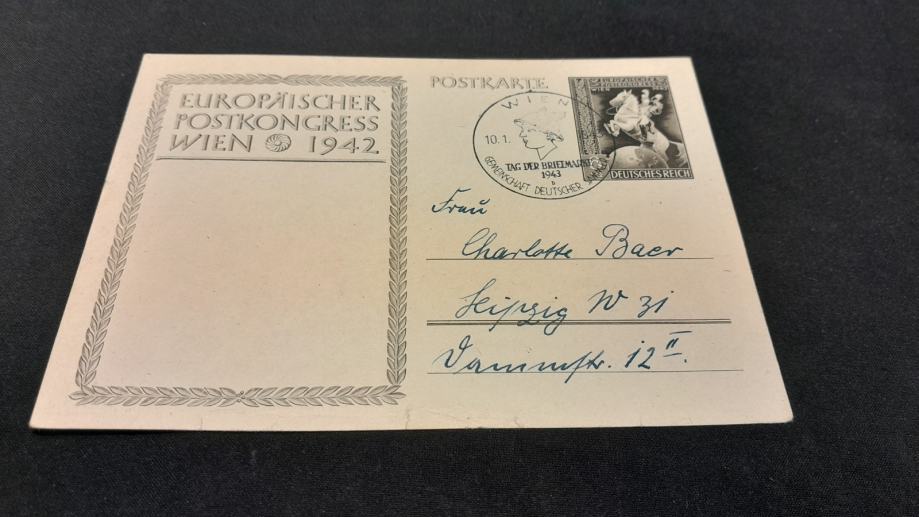 EUROPÄISCHER
POSTKONGRESS
WIEN 1942
POSTKARTE
WIEN
10.1.
TAG DER BRIEFMARKE
1943
b
GEMEINSCHAFT DEUTSCHER
EUROPÄISCHER
WIEN
DEUTSCHES REICH
Frau
Charlotte Baer
Leipzig W 31
Dammstr. 12 II.